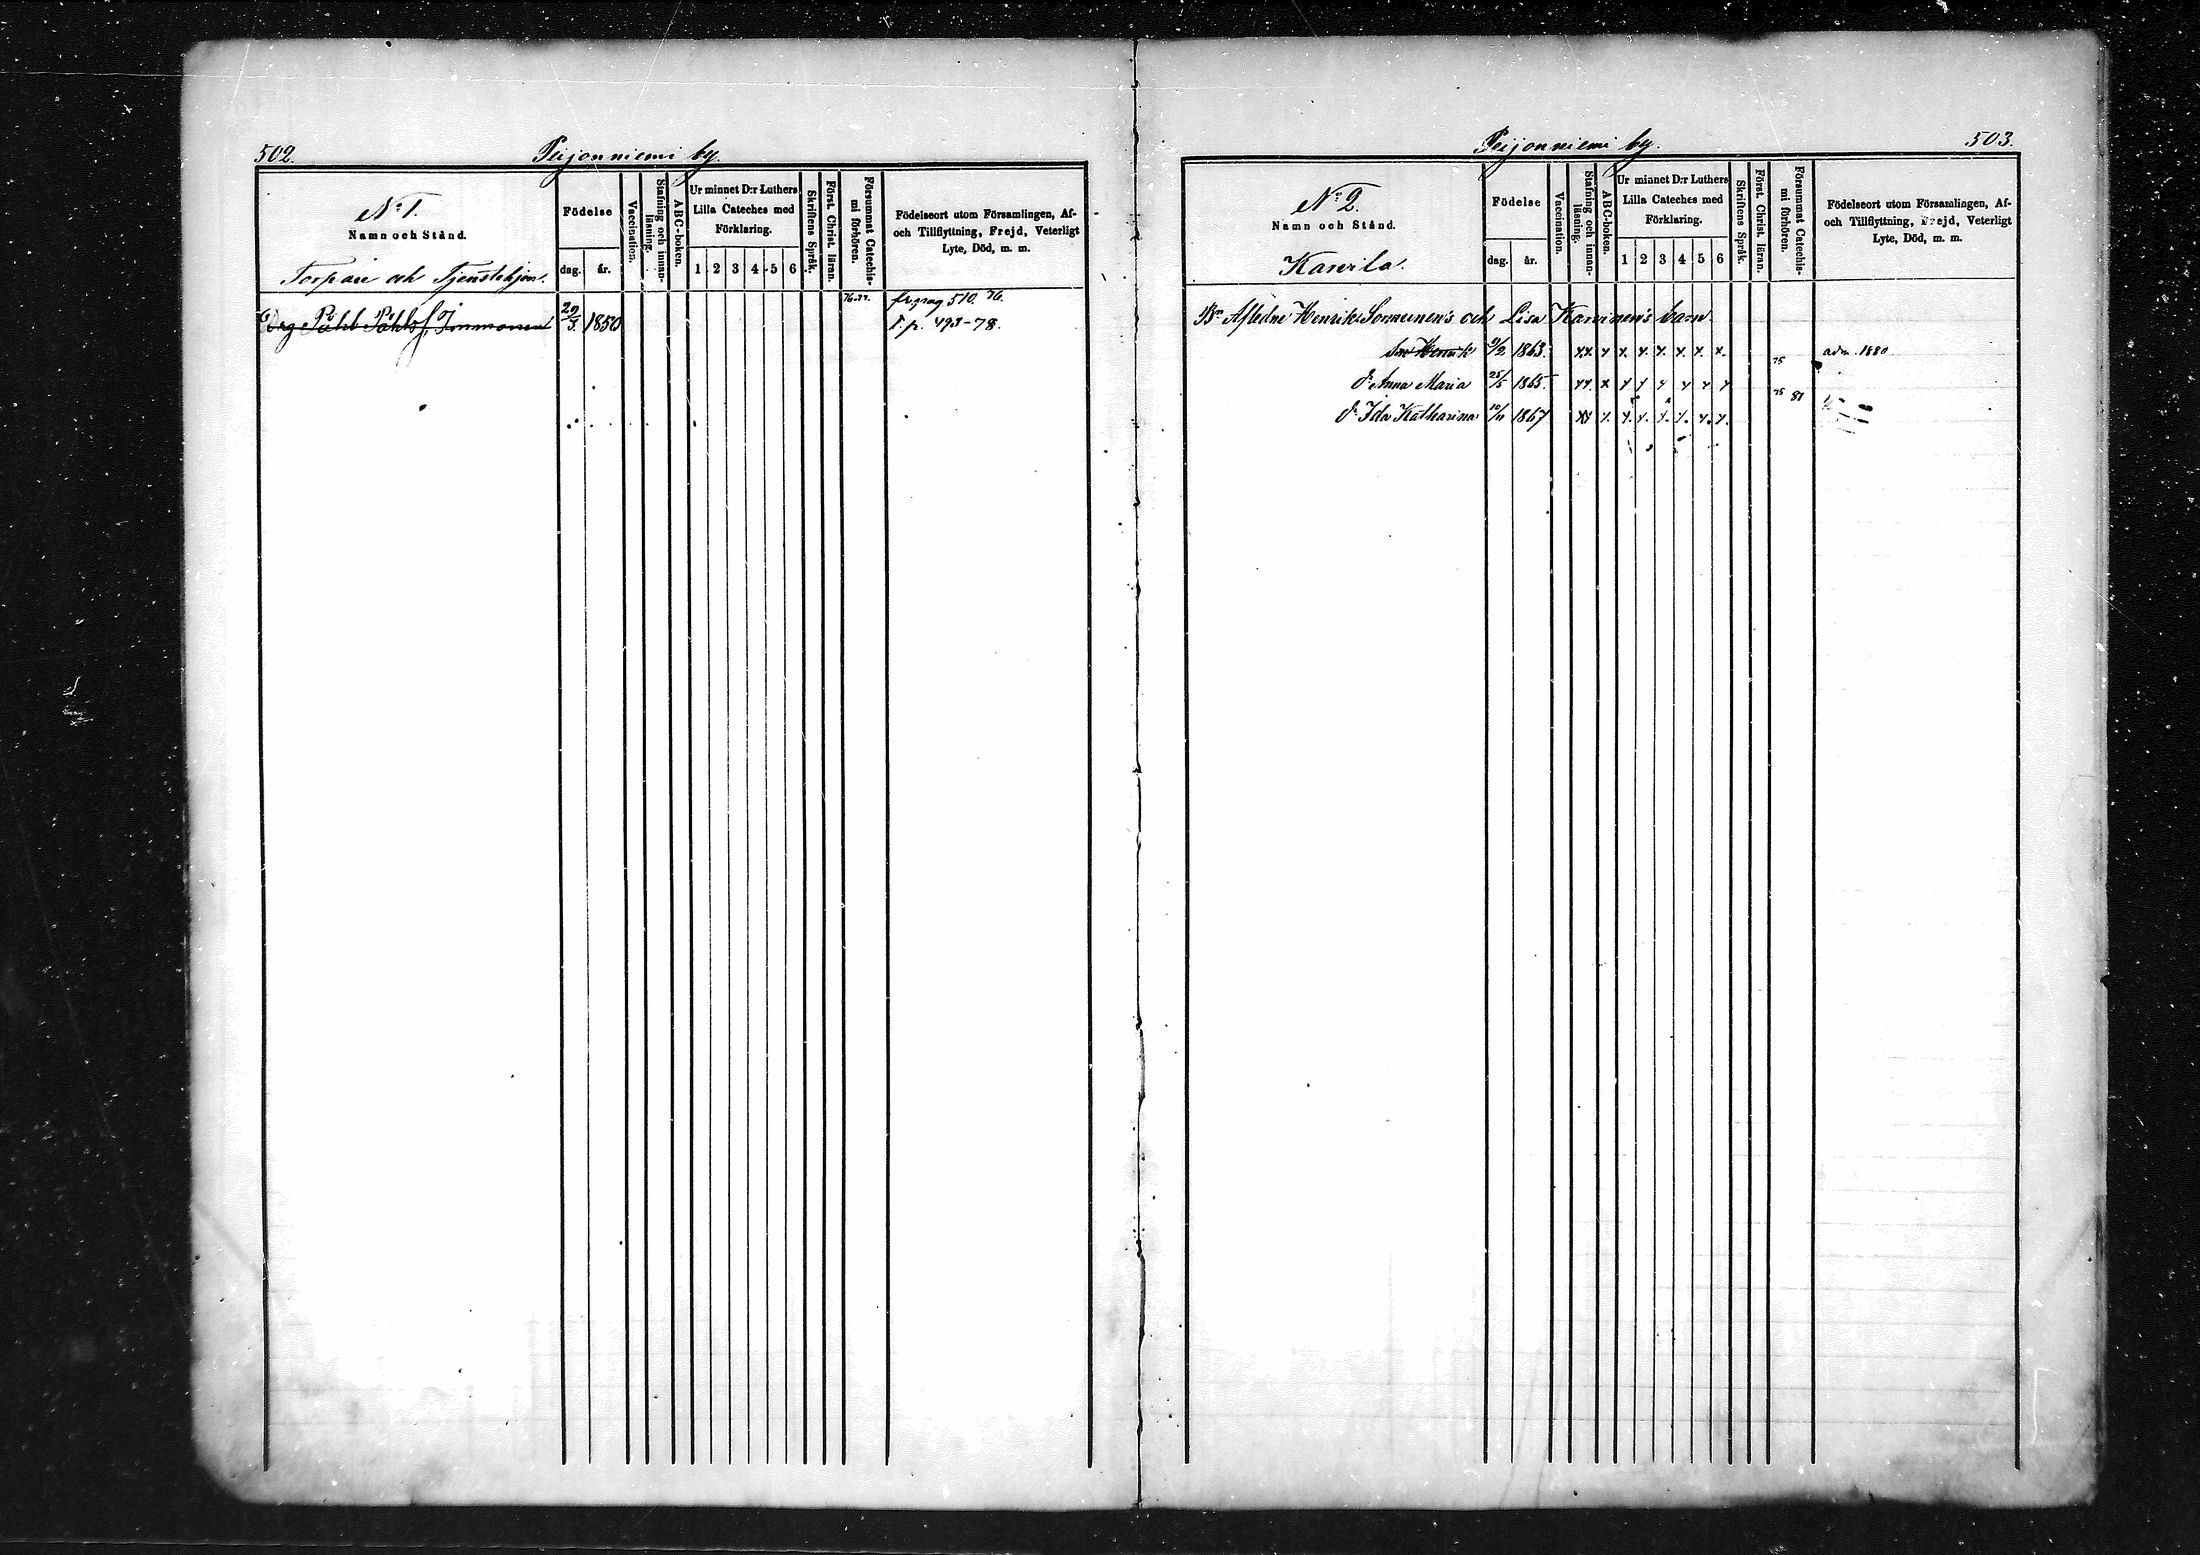 502.
Peijonniemi by.
No 1.
Namn och Stånd.
Födelse
dag.
år.
Vaccination.
Stafning och innan-
läsning.
ABC-boken.
Ur minnet D:r Luthers
Lilla Cateches med
Förklaring.
1 2 3 4 5 6
Skriftens Språk.
Först. Christ. läran.
Försummat Catechis-
mi förhören.
Födelseort utom Församlingen, Af-
och Tillflyttning, Frejd, Veterligt
Lyte, Död, m. m.
Torpare och Tjenstehjon.
76.77. fr. pag 510. 76.
Drg Påhl Påhlsf. Immonen 29/3 1850 T. p. 493-78.
Peijonniemi by.
503.
No 2.
Namn och Stånd.
Karvila.
Födelse
dag.
år.
Vaccination.
Stafning och innan-
läsning.
ABC-boken.
Ur minnet D:r Luthers
Lilla Cateches med
Förklaring.
1 2 3 4 5 6
Skriftens Språk.
Först. Christ. läran.
Försummat Catechis-
mi förhören.
Födelseort utom Församlingen, Af-
och Tillflyttning, Frejd, Veterligt
Lyte, Död, m. m.
Bn Aflidne Henrik Sormunen's och Lisa Karvinen's barn.
Son Henrik 9/2 1863. x.x. x x. x. x. x. x. x. 75 adm. 1880
dr Anna Maria 25/5 1865. x x. x x x x x x x 75 81
dr Ida Katharina 10/11 1867 xx x. x. x. x. x. x. x.